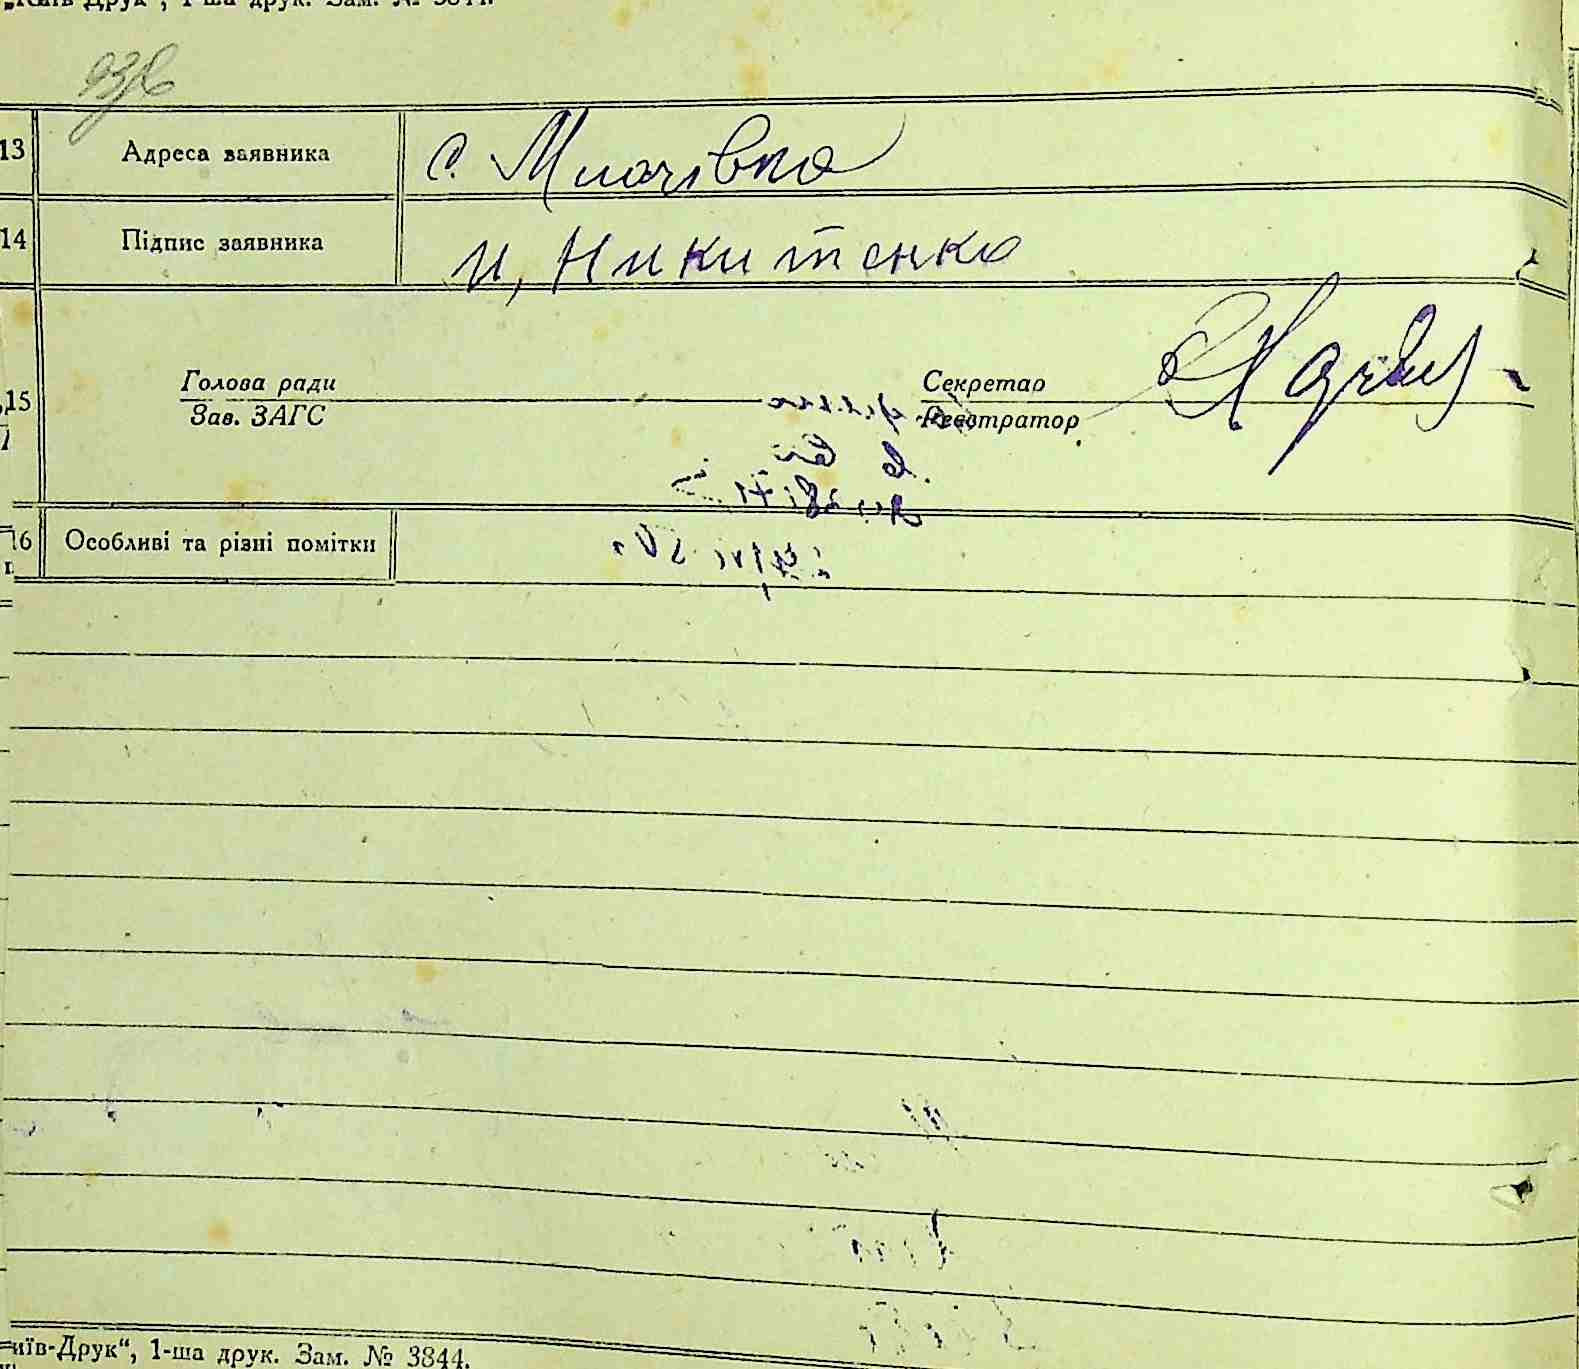 „Київ-Друк“, 1-ша друк. Зам. № 3844.
13 Адреса заявника с. Милачівка
14 Підпис заявника И, Никитенко
Голова ради Секретар
15
Зав. ЗАГС Реєстратор
16 Особливі та різні помітки
иїв-Друк“, 1-ша друк. Зам. № 3844.